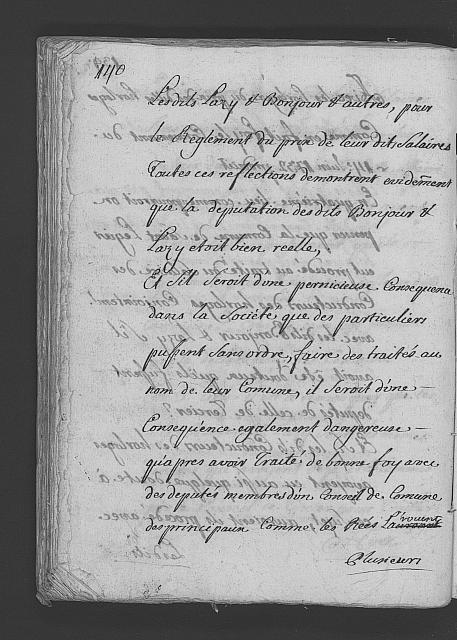 140
Lesdits Lazy & Bonjour & autres, pour
le Reglement du prix de leurdit Salaires
Toutes ces reflections demontrent evidem̃ent
que la deputation desdits Bonjour &
Lazy etoit bien reelle,
Et s'il Seroit d'une pernicieuse Consequence
dans la Société que des particuliers
pussent sans ordre, faire des traités au
nom de leur Comune, il Seroit d'une —
Consequence egalement dangereuse —
qu'apres avoir Traité de bonne foy avec
des deputés membres d'un Conseil de Comune
des principaux Comme les Rées
Plusieurs